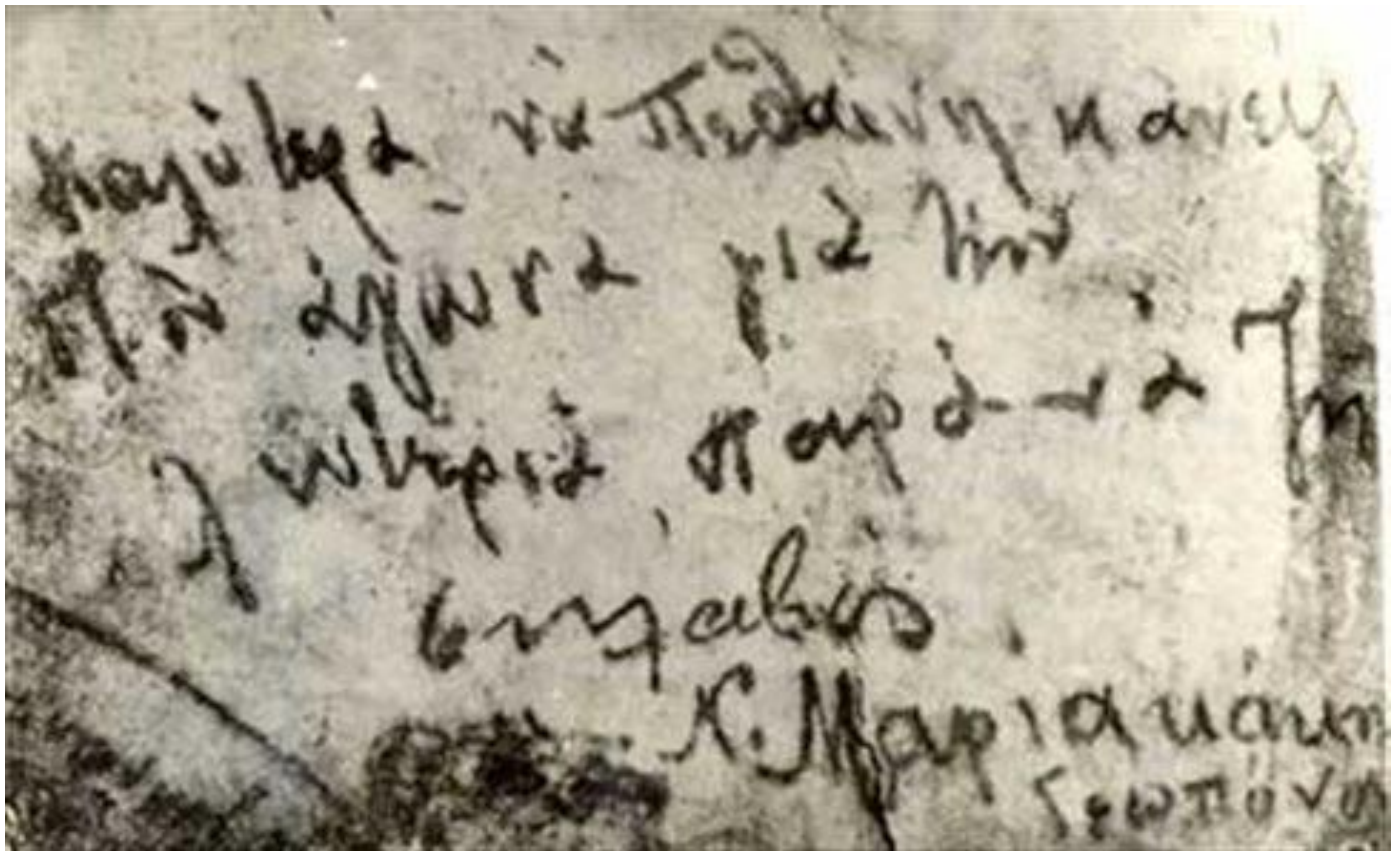 καλύτερα νὰ πεθαίνη κανείς
στὸν ἀγώνα γιὰ τὴν
λευτεριὰ παρὰ νὰ ζῆ
σκλάβος.
Κ. Μαριακάκη
Γεωπόνος